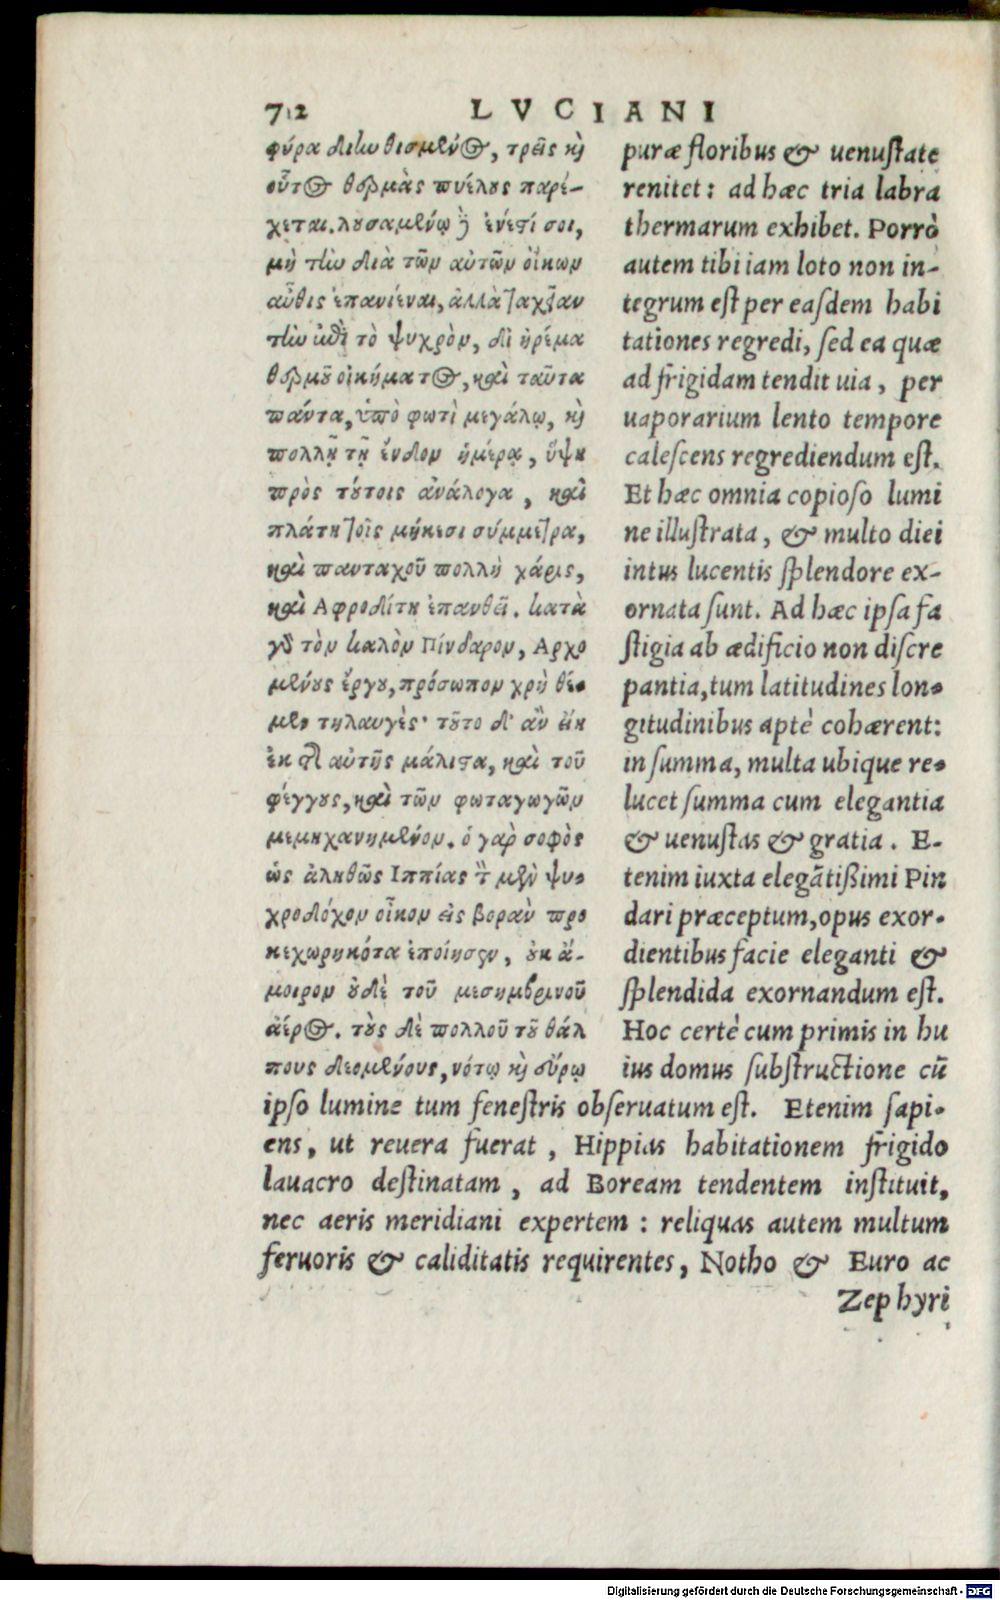 712
LVCIANI
φύρα διηνθισμένος, τρεῖς καὶ
οὗτος θερμὰς πυέλους παρέ-
χεται. λουσαμένῳ δὲ ἔνεστί σοι,
μὴ τὴν διὰ τῶν αὐτῶν οἴκων
αὖθις ἐπανιέναι, ἀλλὰ ταχεῖαν
τὴν ἐπὶ τὸ ψυχρὸν, δι ἠρέμα
θερμοῦ οἰκήματος, καὶ ταῦτα
πάντα, ὑπὸ φωτὶ μεγάλῳ, καὶ
πολλῇ τῇ ἔνδον ἡμέρᾳ, ὕψη
πρὸς τούτοις ἀνάλογα, καὶ
πλάτη τοῖς μήκεσι σύμμετρα,
καὶ πανταχοῦ πολλὴ χάρις,
καὶ Αφροδίτη ἐπανθεῖ. κατὰ
γὰρ τὸν καλὸν Πίνδαρον, Αρχο
μένους ἔργου, πρόσωπον χρὴ θέ-
μεν τηλαυγές· τοῦτο δ' ἂν εἴη
ἐκ τῆς αὐτῆς μάλιστα, καὶ τοῦ
φέγγους, καὶ τῶν φωταγωγῶν
μεμηχανημένον. ὁ γὰρ σοφὸς
ὡς ἀληθῶς Ιππίας τὸν μὲν ψυ-
χροδόχον οἶκον εἰς βορᾶν προ
κεχωρηκότα ἐποίησεν, οὐκ ἄ-
μοιρον οὐδὲ τοῦ μεσημβρινοῦ
ἀέρος. τοὺς δὲ πολλοῦ τοῦ θάλ
πους δεομένους, νότῳ καὶ εὔρῳ
puræ floribus & uenustate
renitet: ad hæc tria labra
thermarum exhibet. Porrò
autem tibi iam loto non in-
tegrum est per easdem habi
tationes regredi, sed ea quæ
ad frigidam tendit uia, per
uaporarium lento tempore
calescens regrediendum est.
Et hæc omnia copioso lumi
ne illustrata, & multo diei
intus lucentis splendore ex-
ornata sunt. Ad hæc ipsa fa
stigia ab ædificio non discre
pantia, tum latitudines lon-
gitudinibus aptè cohærent:
in summa, multa ubique re-
lucet summa cum elegantia
& uenustas & gratia. E-
tenim iuxta elegãtißimi Pin
dari præceptum, opus exor-
dientibus facie eleganti &
splendida exornandum est.
Hoc certè cum primis in hu
ius domus substructione cũ
ipso lumine tum fenestris obseruatum est. Etenim sapi-
ens, ut reuera fuerat, Hippias habitationem frigido
lauacro destinatam, ad Boream tendentem instituit,
nec aeris meridiani expertem: reliquas autem multum
feruoris & caliditatis requirentes, Notho & Euro ac
Zephyri
Digitalisierung gefördert durch die Deutsche Forschungsgemeinschaft - DFG